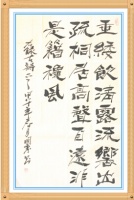 垂緌飲清露流響出
疏桐居高聲自遠非
是籍穐風